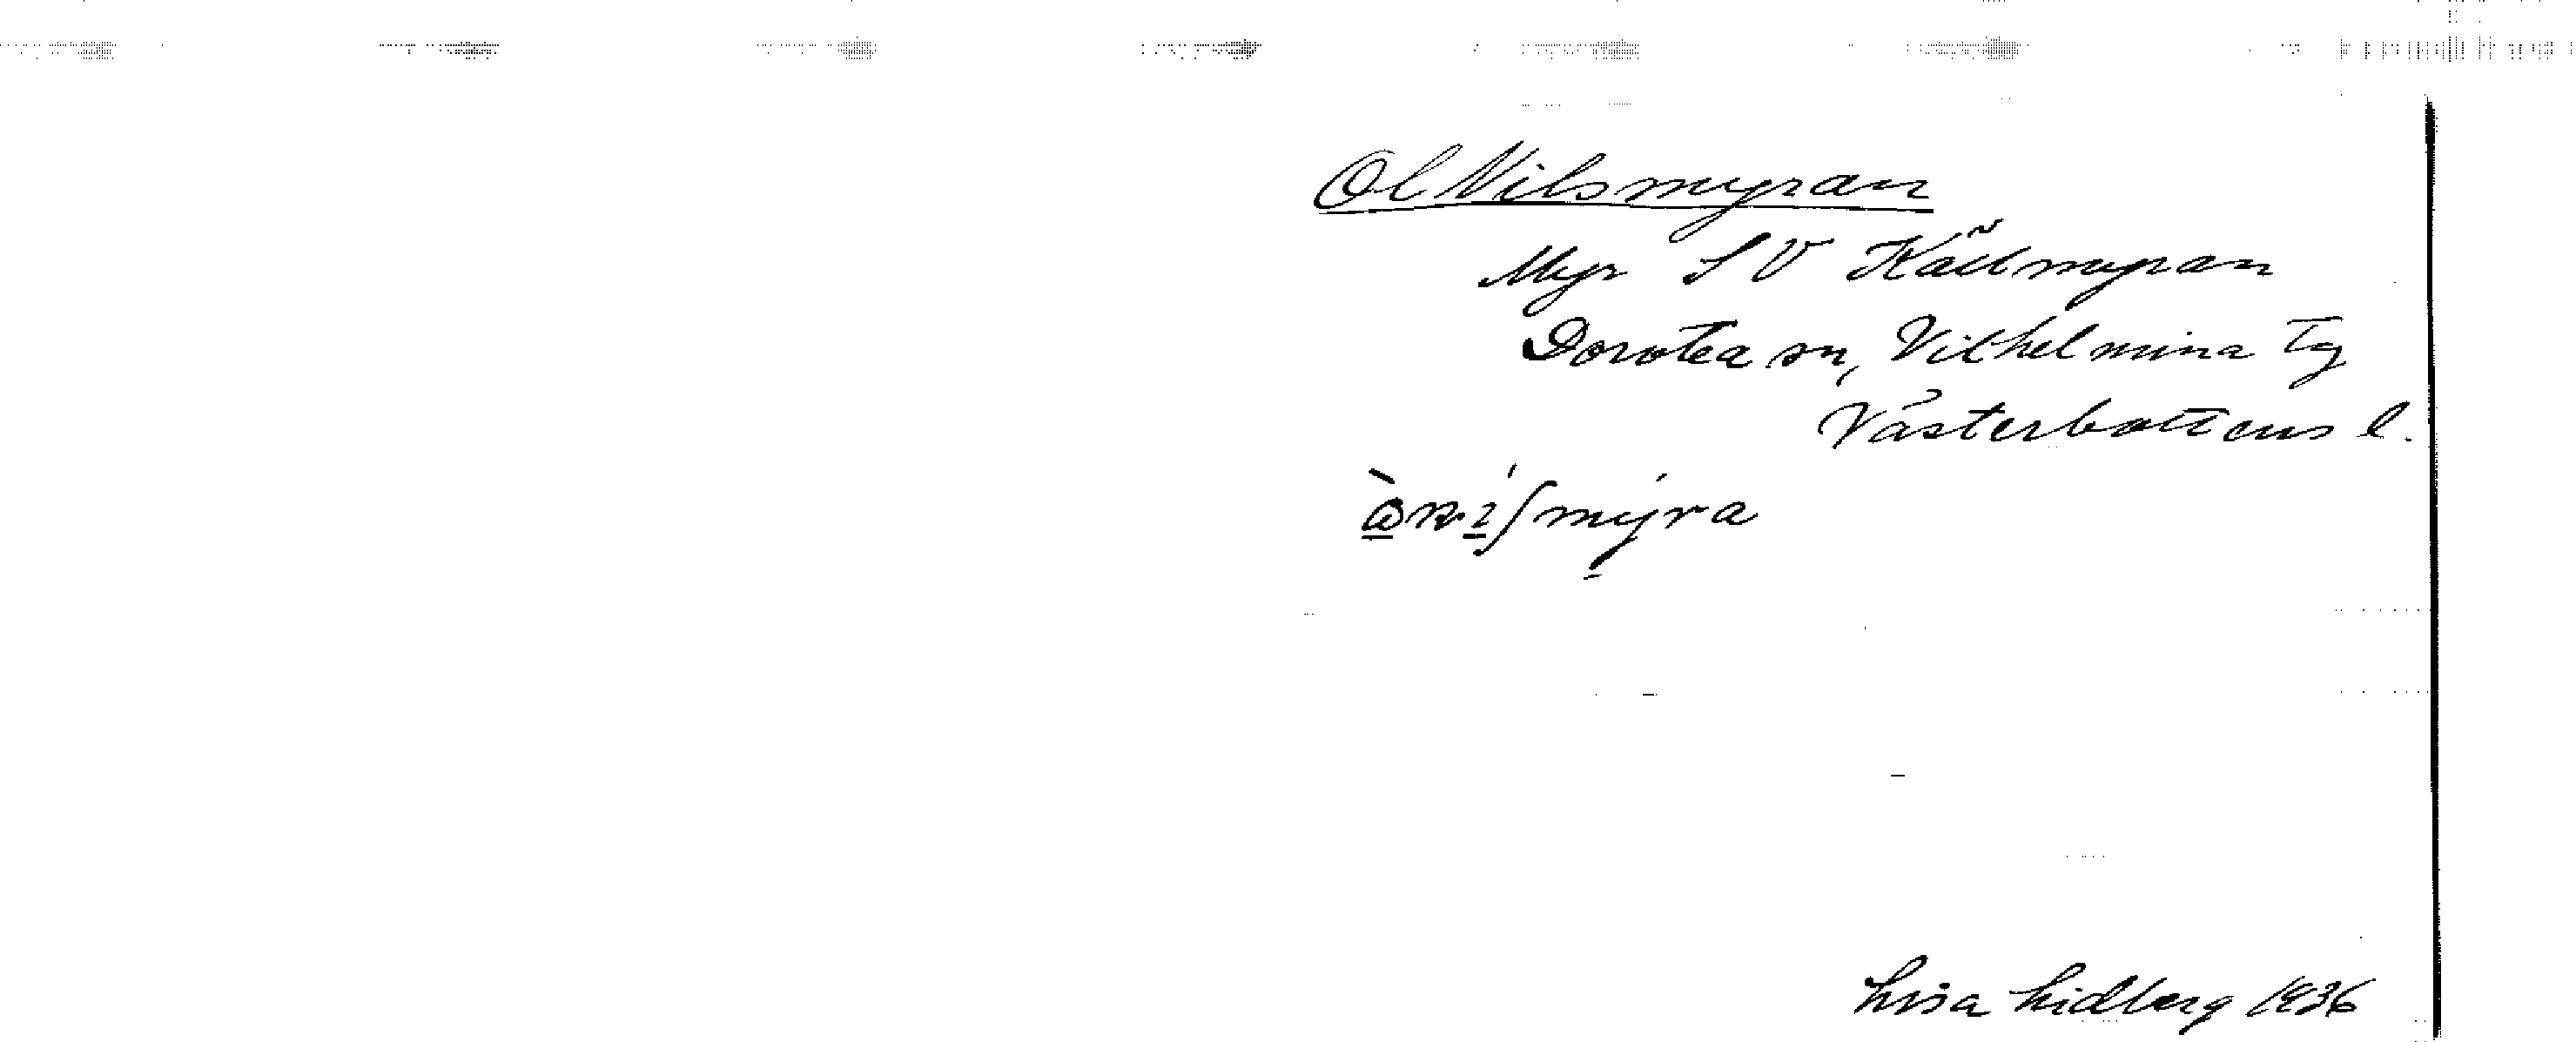 Ol Nilsmyran
Myr S V Källmyran
Dorotea sn, Vilhelmina tg
Västerbottens l.
Lisa Lidberg 1936